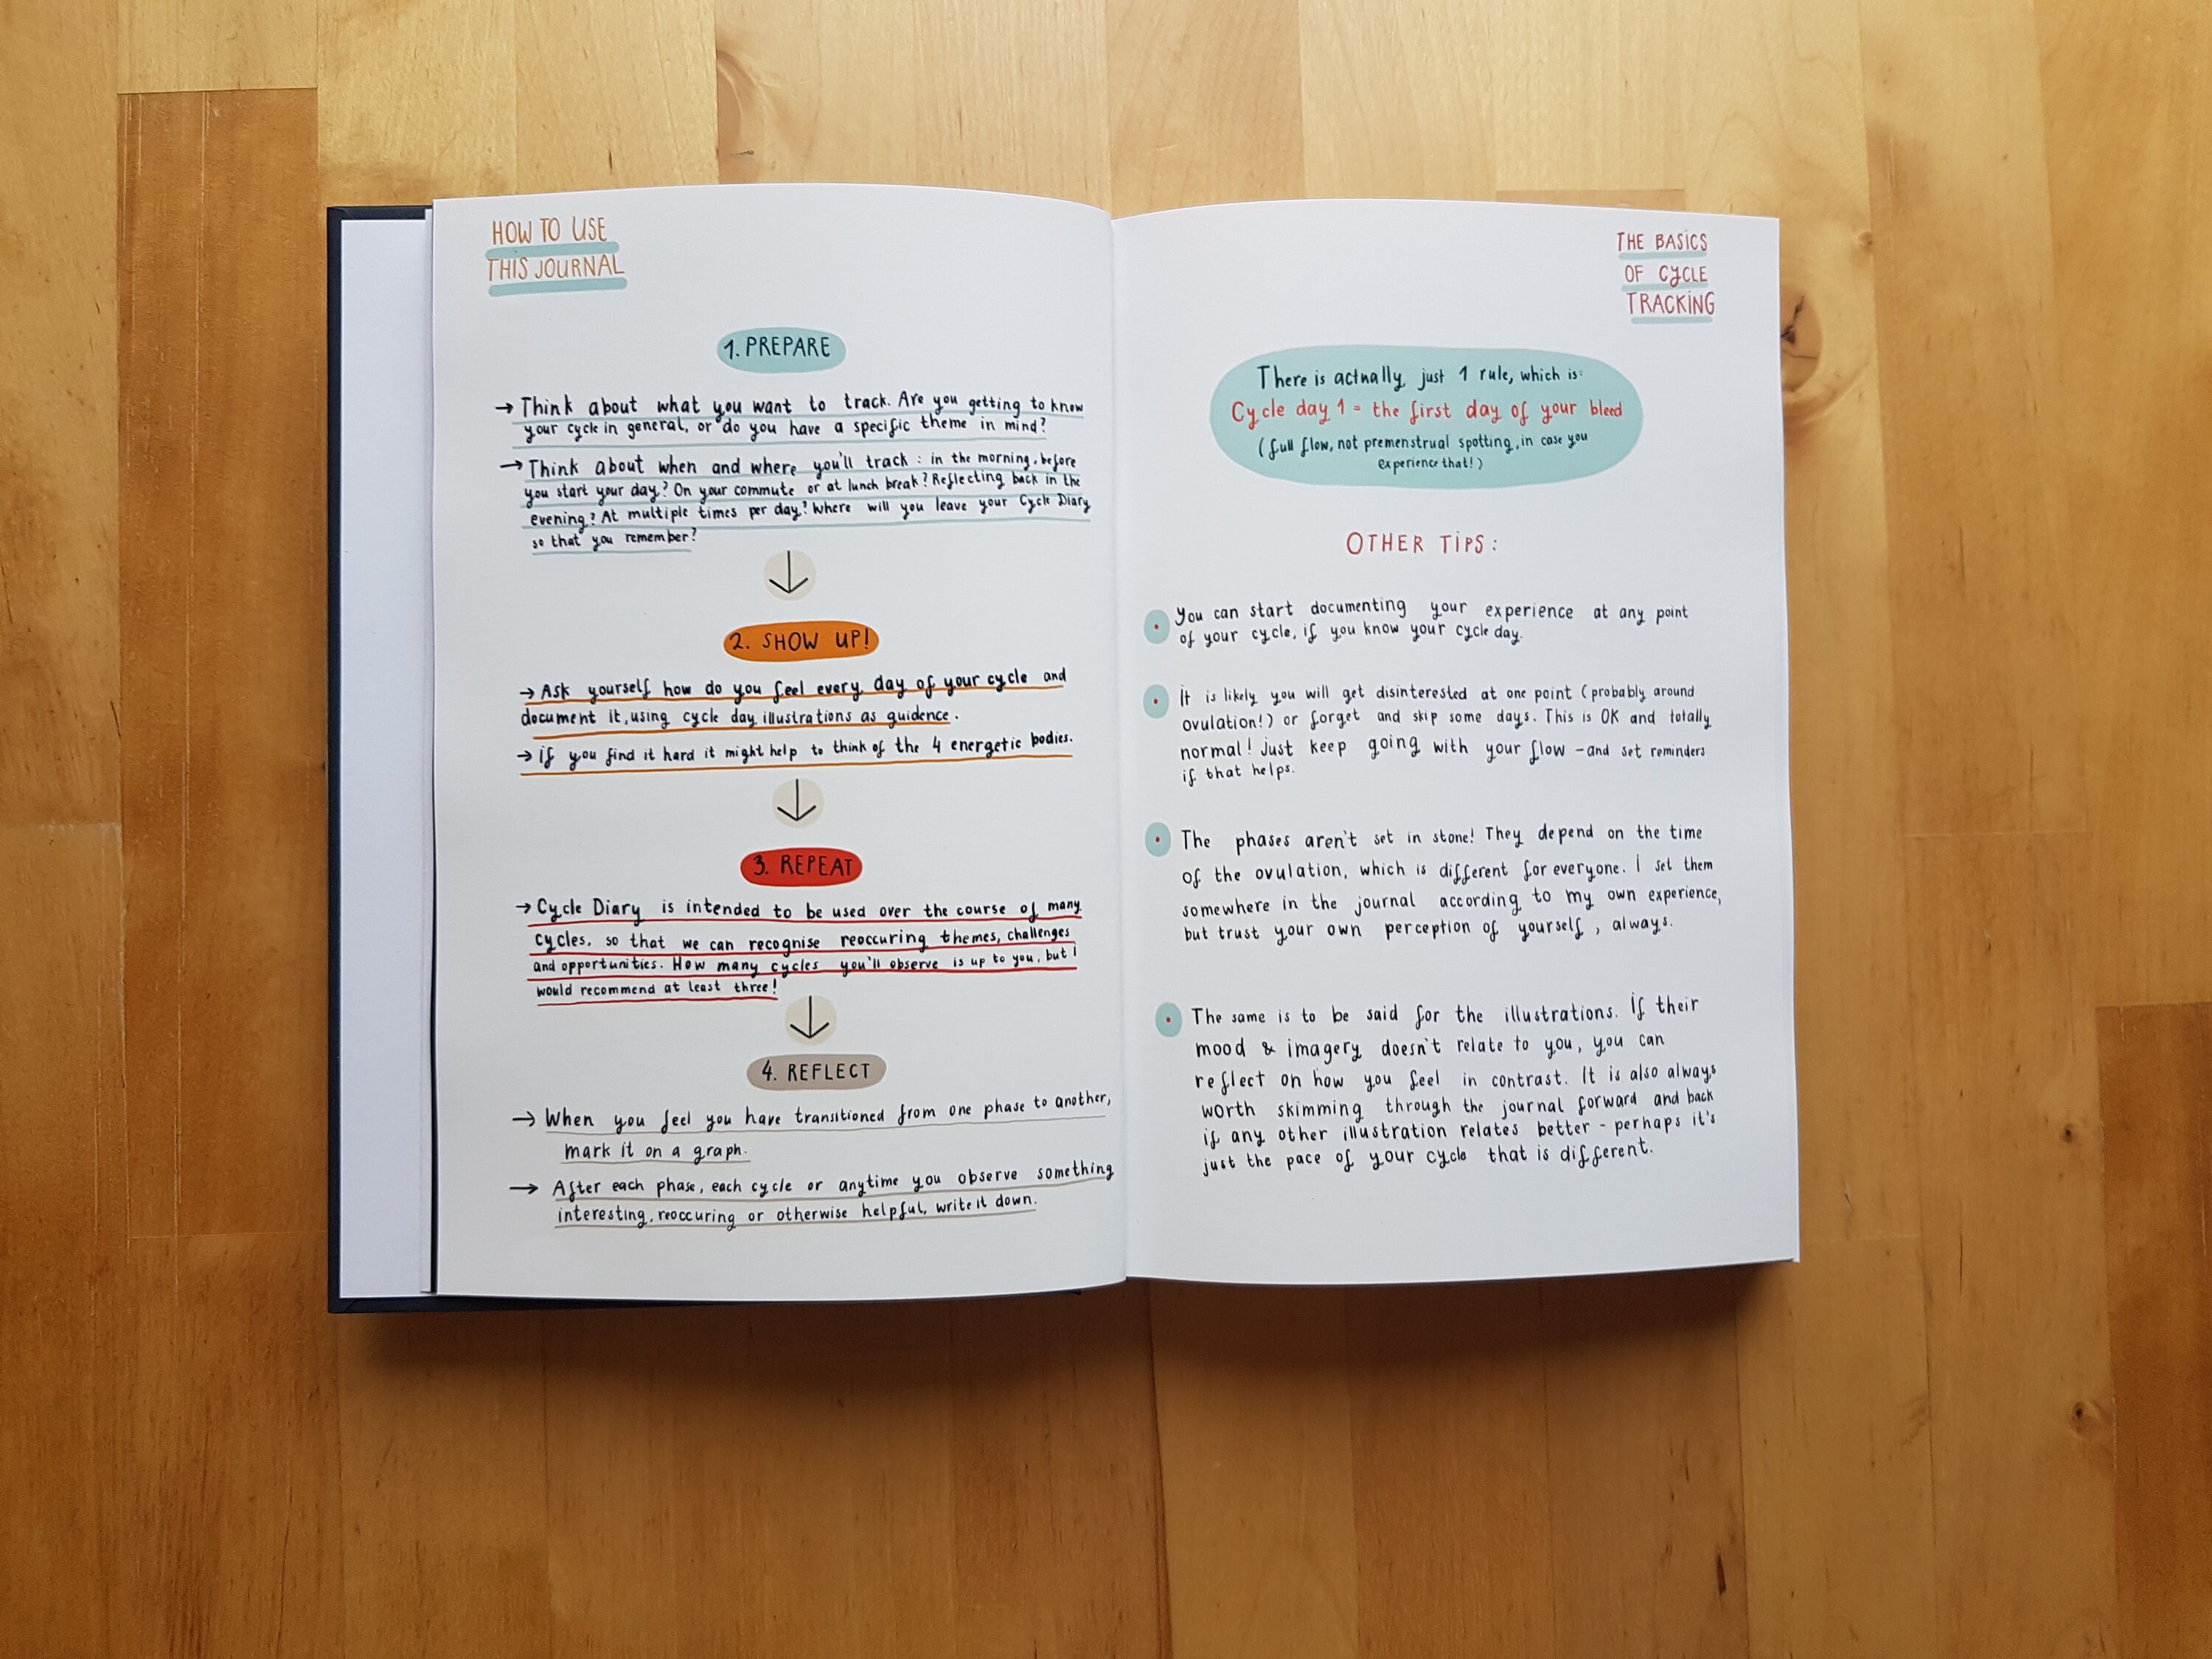 HOW TO USE
THIS JOURNAL
1. PREPARE
→ Think about what you want to track. Are you getting to know
your cycle in general, or do you have a specific theme in mind?
→ Think about when and where you'll track : in the morning, before
you start your day? On your commute or at lunch break? Reflecting back in the
evening? At multiple times per day? Where will you leave your Cycle Diary
so that you remember?
↓
2. SHOW UP!
→ Ask yourself how do you feel every day of your cycle and
document it, using cycle day illustrations as guidence.
→ if you find it hard it might help to think of the 4 energetic bodies.
↓
3. REPEAT
→ Cycle Diary is intended to be used over the course of many
cycles, so that we can recognise reoccuring themes, challenges
and opportunities. How many cycles you'll observe is up to you, but I
would recommend at least three!
↓
4. REFLECT
→ When you feel you have transitioned from one phase to another,
mark it on a graph.
→ After each phase, each cycle or anytime you observe something
interesting, reoccuring or otherwise helpful, write it down.
THE BASICS
OF CYCLE
TRACKING
There is actually just 1 rule, which is:
Cycle day 1 = the first day of your bleed
(full flow, not premenstrual spotting, in case you
experience that!)
OTHER TIPS:
You can start documenting your experience at any point
of your cycle, if you know your cycle day.
It is likely you will get disinterested at one point (probably around
ovulation!) or forget and skip some days. This is OK and totally
normal! Just keep going with your flow – and set reminders
if that helps.
The phases aren't set in stone! They depend on the time
of the ovulation, which is different for everyone. I set them
somewhere in the journal according to my own experience,
but trust your own perception of yourself, always.
The same is to be said for the illustrations. If their
mood & imagery doesn't relate to you, you can
reflect on how you feel in contrast. It is also always
worth skimming through the journal forward and back
if any other illustration relates better - perhaps it's
just the pace of your cycle that is different.